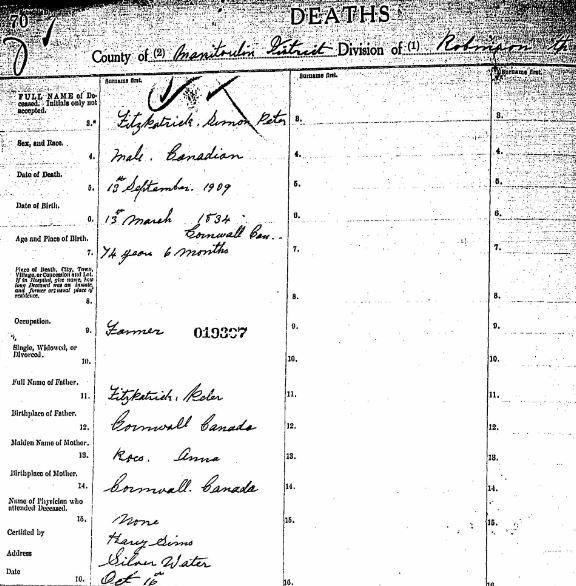 70
DEATHS
County of (2) Manitoulin District Division of (1) Robinson
Surname first.
Surname first.
Surname first.
FULL NAME of Deceased. Initials only not accepted.
3.* Fitzpatrick, Simon Peter
3.
3.
Sex, and Race.
4. Male. Canadian
4.
4.
Date of Death.
5. 13th September. 1909
5.
5.
Date of Birth.
6. 13th March 1834
6.
6.
Cornwall Can..
Age and Place of Birth.
7. 74 years 6 months
7.
7.
Place of Death, City, Town, Village, or Concession and Lot. If in Hospital, give name, how long Deceased was an inmate, and former or usual place of residence.
8.
8.
8.
Occupation.
9. Farmer 019397
9.
9.
Single, Widowed, or Divorced.
10.
10.
10.
Full Name of Father.
11. Fitzpatrick, Peter
11.
11.
Birthplace of Father.
12. Cornwall Canada
12.
12.
Maiden Name of Mother.
13. Ross. Anna
13.
13.
Birthplace of Mother.
14. Cornwall. Canada
14.
14.
Name of Physician who attended Deceased.
15. None
15.
15.
Certified by Harry Sims
Address Silver Water
Date Oct 16th
16.
16.
16.